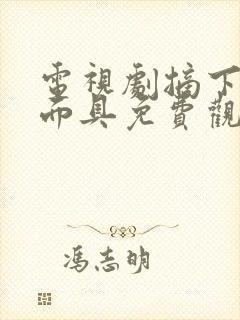 電視劇摘下
面具免費觀
馮志明